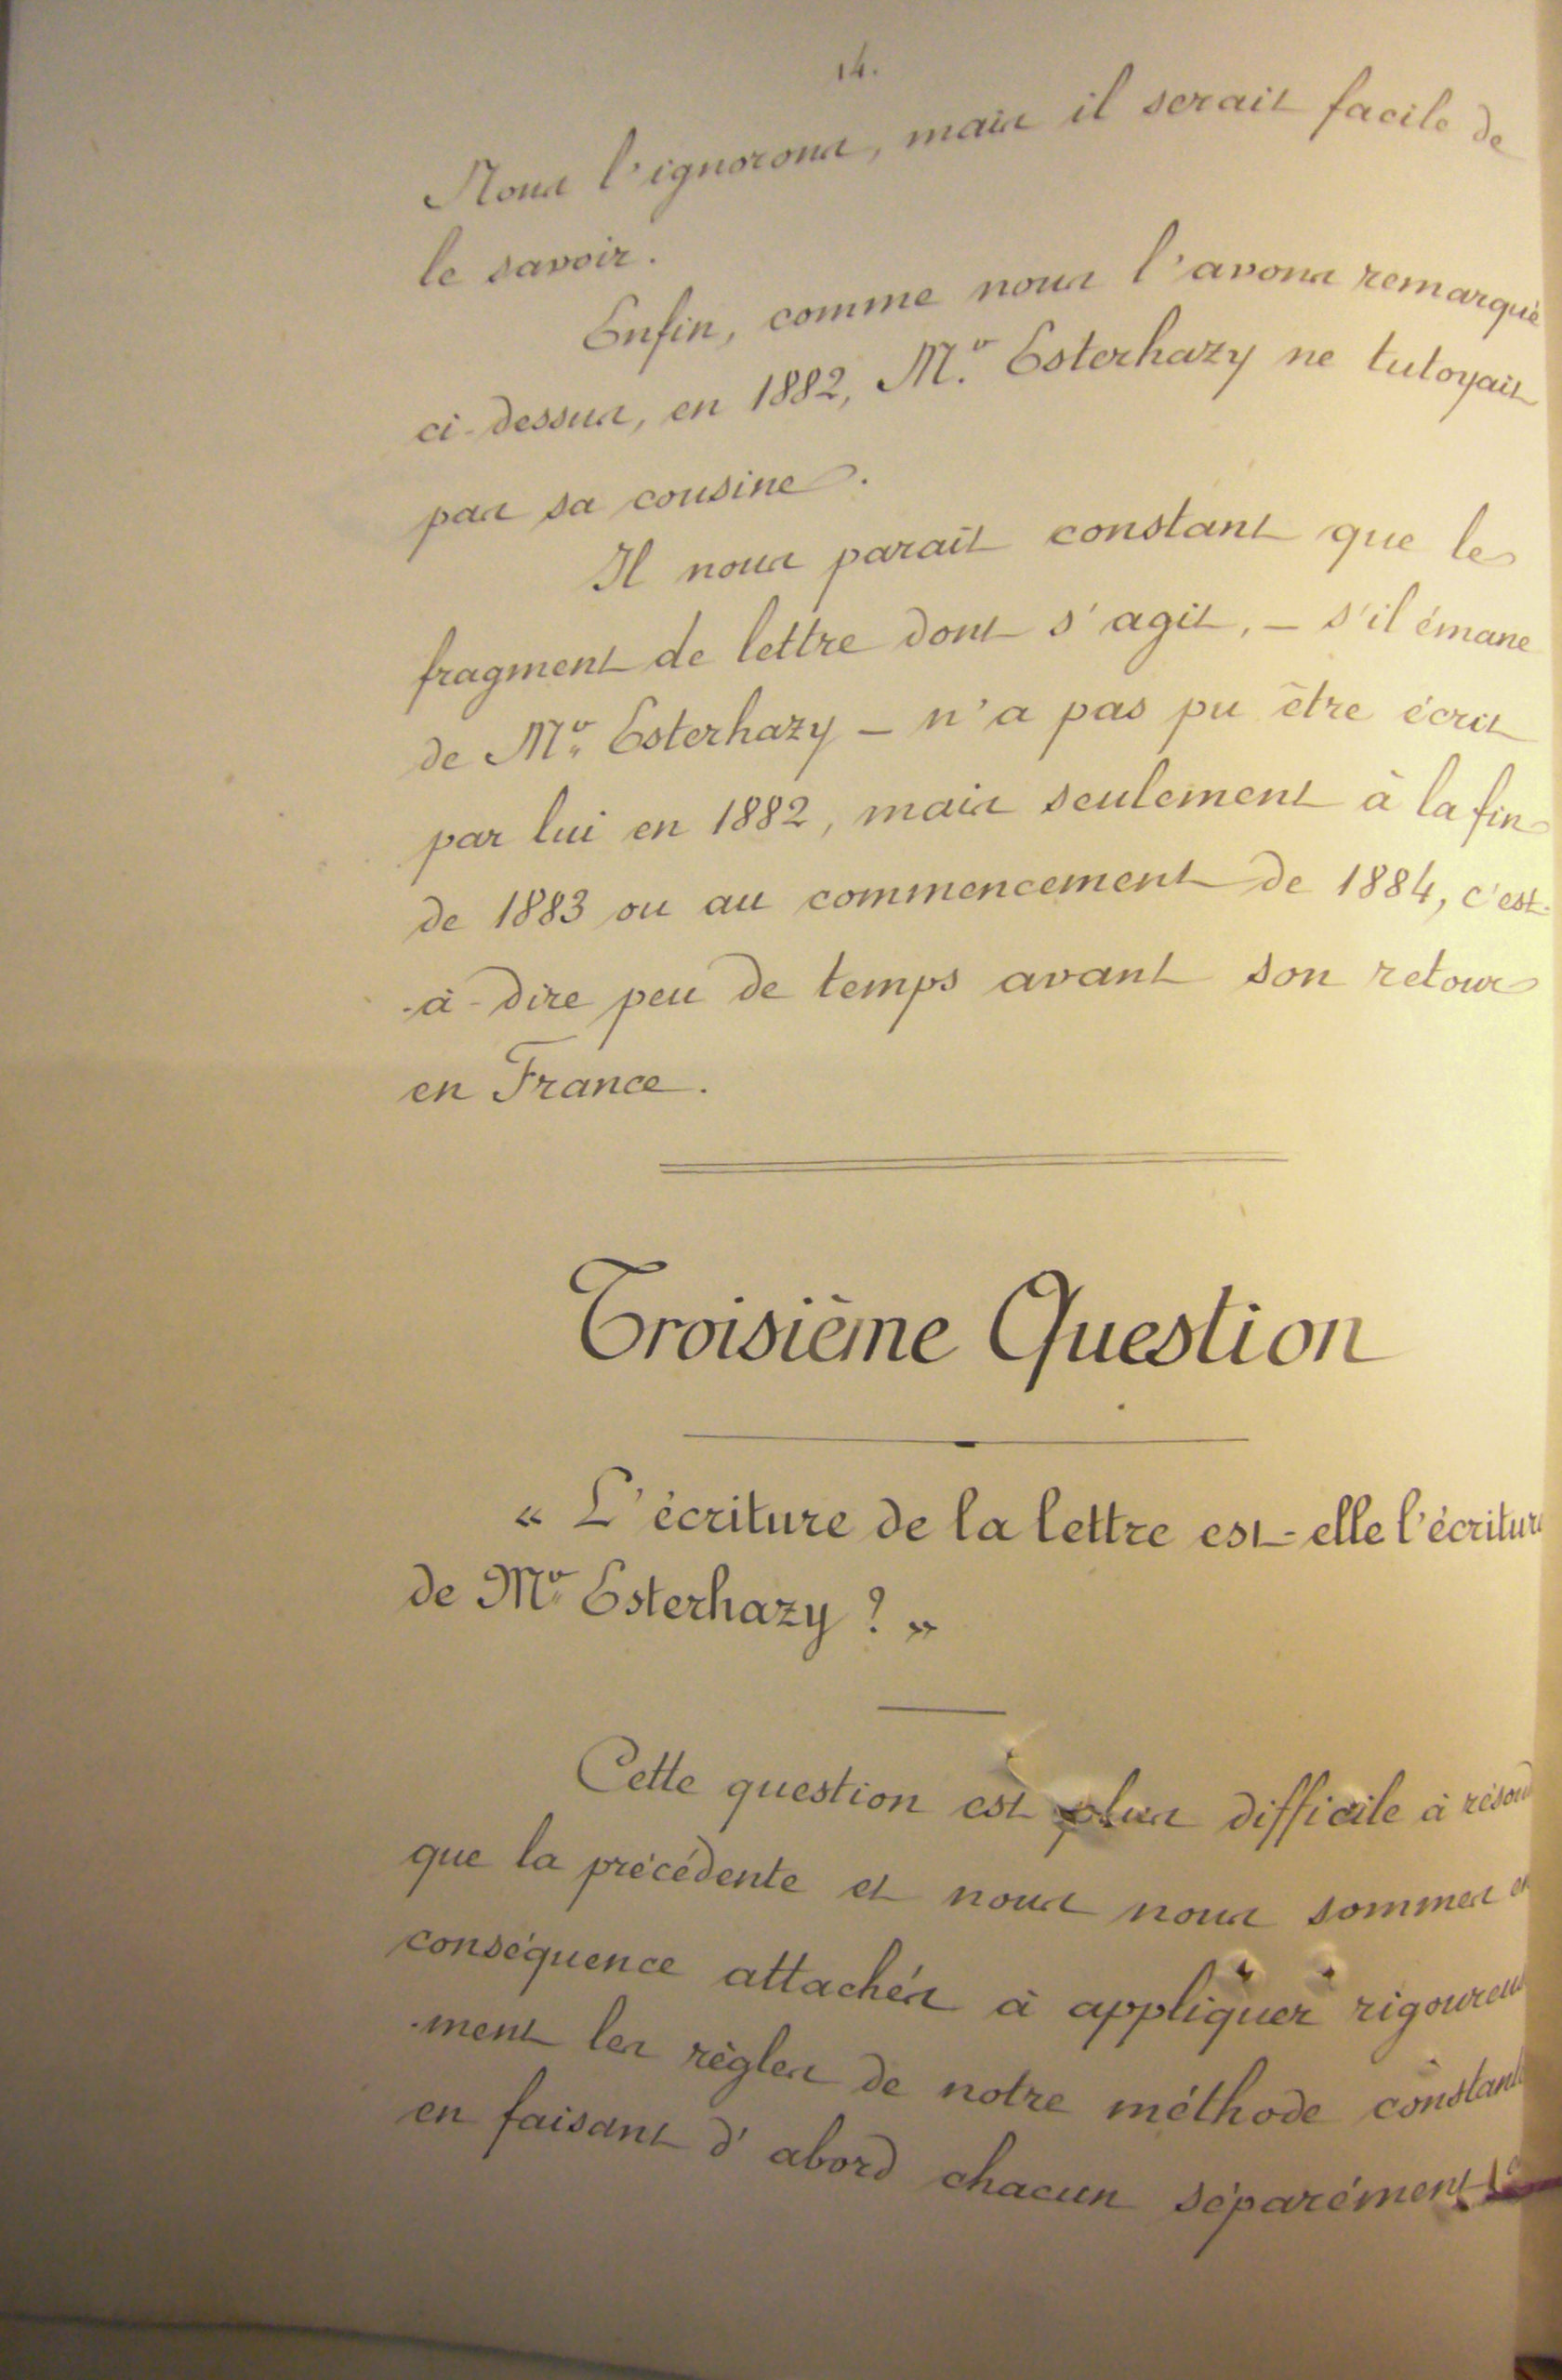 14.
Nous l'ignorons, mais il serait facile de
le savoir.
Enfin, comme nous l'avons remarqué
ci-dessus, en 1882, M.r Esterhazy ne tutoyait
pas sa cousine.
Il nous parait constant que le
fragment de lettre dont s'agit, — s'il émane
de Mr Esterhazy — n'a pas pu être écrit
par lui en 1882, mais seulement à la fin
de 1883 ou au commencement de 1884, c'est-
-à-dire peu de temps avant son retour
en France.
Troisième Question
« L'écriture de la lettre est-elle l'écriture
de Mr Esterhazy ? »
Cette question est plus difficile à résoud
que la précédente et nous nous sommes en
conséquence attachés à appliquer rigoureus
-ment les règles de notre méthode constante
en faisant d'abord chacun séparément